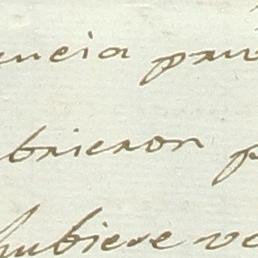 uncia pru
brieron p
hubiere ve